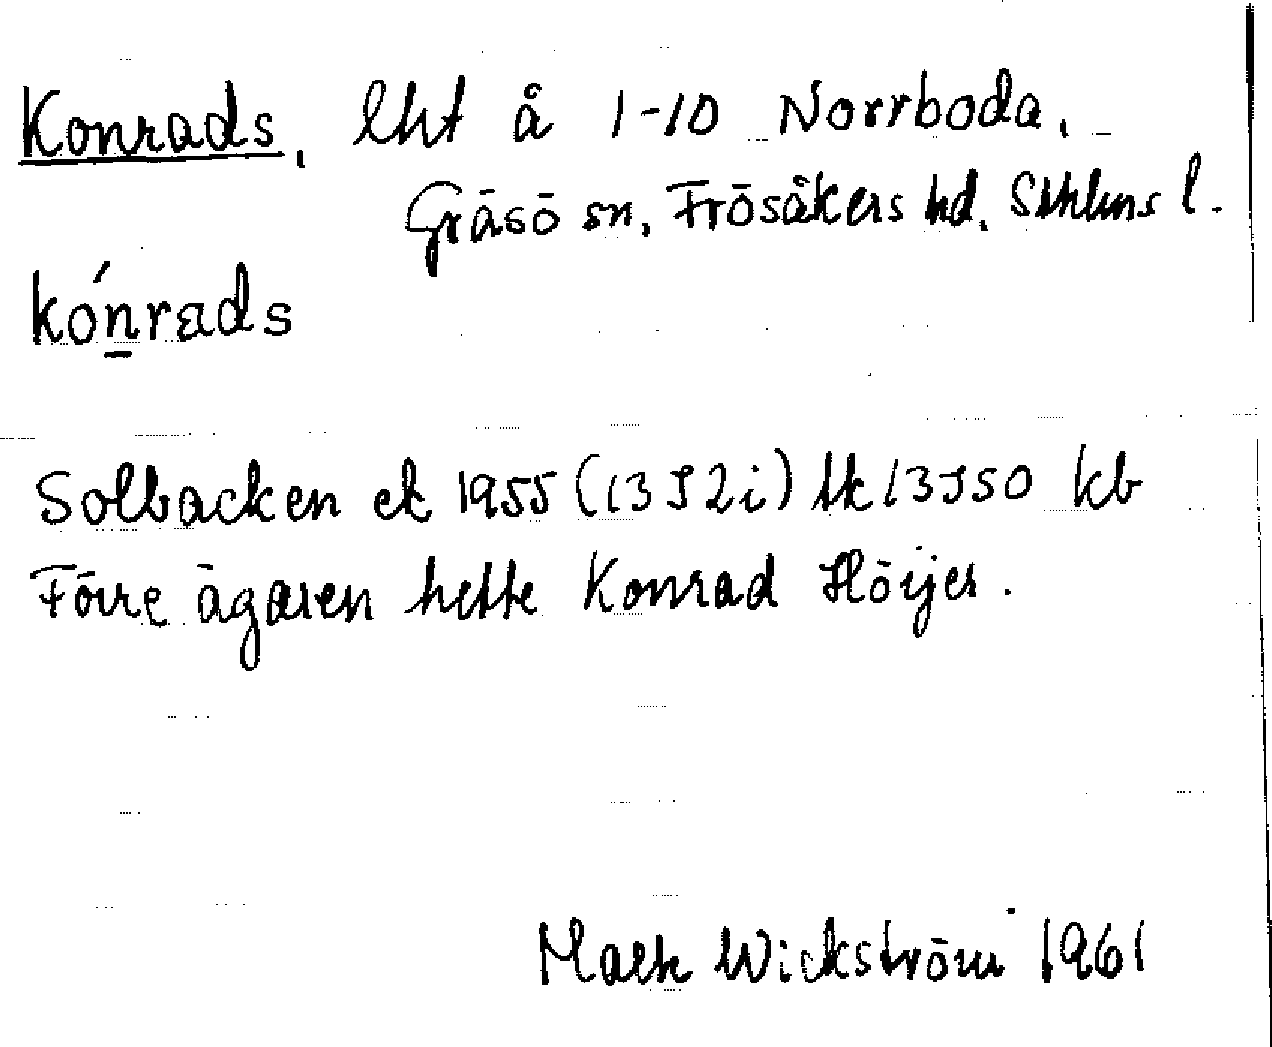 Konrads, lht å 1-10 Norrboda,
Gräsö sn, Frösåkers hd, Sthlms l.
kónrads
Solbacken ek 1955 (13 I 2i) lk 13 I 50 kb
Förre ägaren hette Konrad Höijer.
Wickström 1961